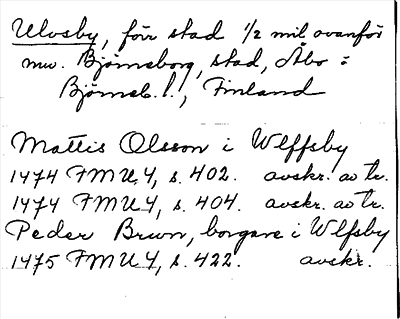 Ulvsby, förr stad 1/2 mil ovanför
nuv. Björneborg, stad, Åbo =
Björneb. l., Finland
Mattis Olsson i Wlffsby
1474 FMU 4, s. 402. avskr. av tr.
1474 FMU 4, s. 404. avskr. av tr.
Peder Brwn, borgare i Wlfsby
1475 FMU 4, s. 422. avskr.